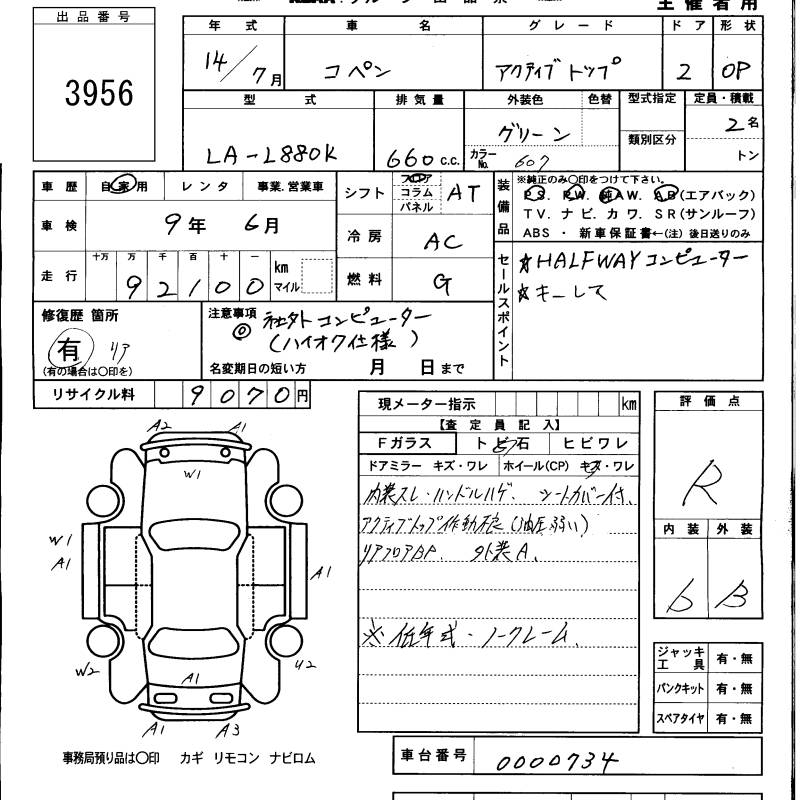 主催者用
出品番号
3956
年式 車名 グレード ドア 形状
14/7月 コペン アクティブトップ 2 OP
型式 排気量 外装色 色替 型式指定 定員・積載
類別区分
LA-L880K 660c.c. グリーン カラーNo. 607 2名
トン
車歴 自家用 レンタ 事業.営業車
車検 9年 6月
走行 十万 万 千 百 十 一
92100 km マイル
シフト フロア コラム パネル AT
冷房 AC
燃料 G
装備品
※純正のみ〇印をつけて下さい。
P.S. P.W. 純A.W. A.B(エアバック)
T V. ナ ビ. カ ワ. S R(サンルーフ)
ABS ・ 新車保証書←(注) 後日送りのみ
セールスポイント
☆HALFWAYコンピューター
☆キーレス
修復歴 箇所
有 リア
(有の場合は〇印を)
注意事項
◎ 社外コンピューター
(ハイオク仕様)
名変期日の短い方 月 日まで
リサイクル料 9070円
現メーター指示 km
【査定員記入】
Fガラス トビ石 ヒビワレ
ドアミラー キズ・ワレ ホイール(CP) キズ・ワレ
内装スレ・ハンドルハゲ. シートカバー付.
アクティブトップ作動不良(油圧弱い)
リアフロアBP. 外装A.
※低年式・ノークレーム.
評価点
R
内装 外装
b B
ジャッキ工具 有・無
パンクキット 有・無
スペアタイヤ 有・無
A2 A1
W1
W1
A1
A1
W2 U2
A1
A1 A3
事務局預り品は〇印 カギ リモコン ナビロム
車台番号 0000734